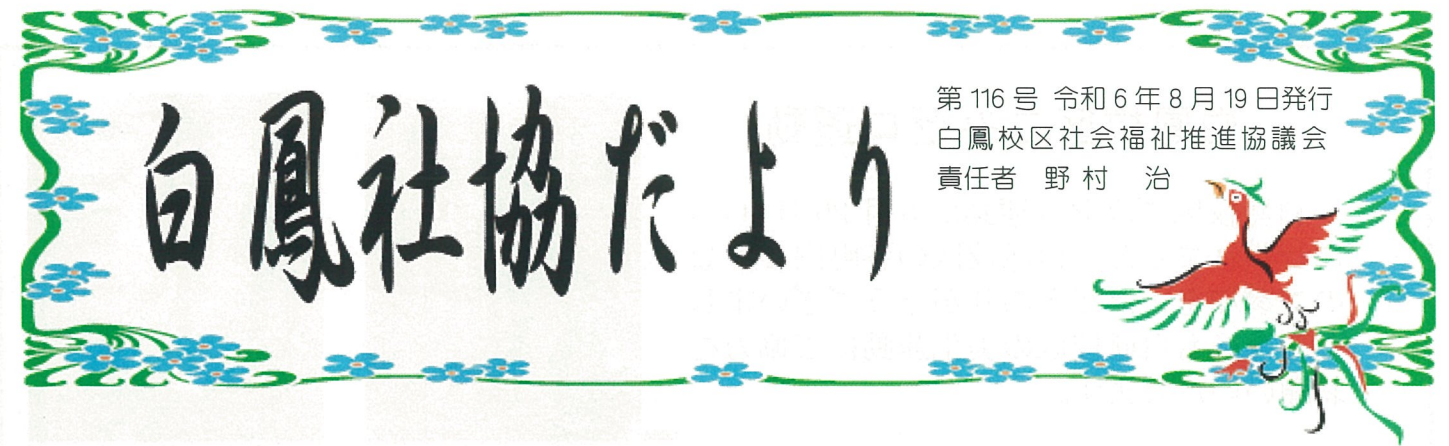 白鳳社協だより
第116号 令和6年8月19日発行
白鳳校区社会福祉推進協議会
責任者 野村 治